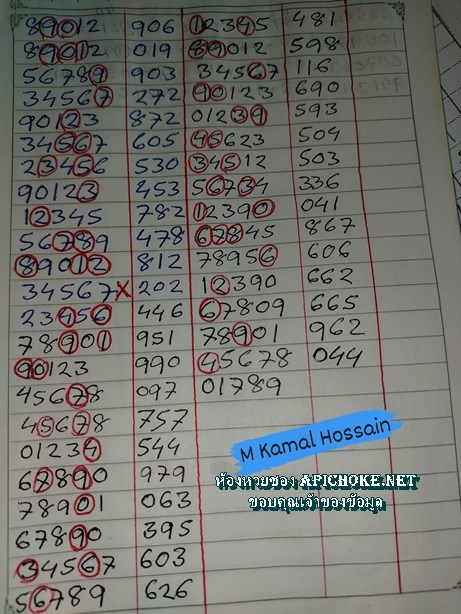 89012 906 12345 481
89012 019 89012 598
56789 903 34567 116
34567 272 90123 690
90123 872 01239 593
34567 605 45623 504
23456 530 34512 503
90123 453 56734 336
12345 782 12390 041
56789 478 67845 867
89012 812 78956 606
34567X 202 12390 662
23456 446 67809 665
78901 951 78901 962
90123 990 45678 044
45678 097 01789
45678 757
01234 544
67890 979
78901 063
67890 395
34567 603
56789 626
M Kamal Hossain
ห้องหวยซอง APICHOKE.NET
ขอบคุณเจ้าของข้อมูล